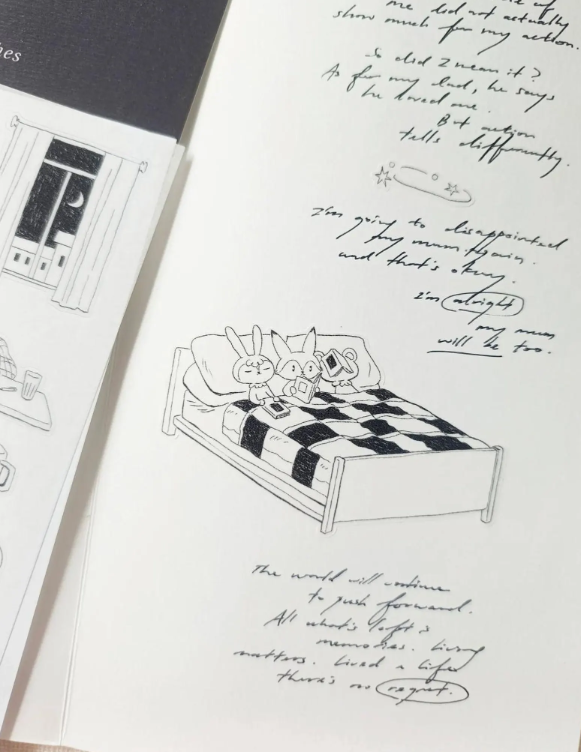 me did not actually
show much for my action.
So did I mean it?
As for my dad, he says
he loved me.
But action
tells differently.
I'm going to disappointed
my mum again.
and that's okay.
I'm alright
my mum
will be too.
The world will continue
to push forward.
All what's left is
memories. Living
matters. Lived a life
there's no regret.